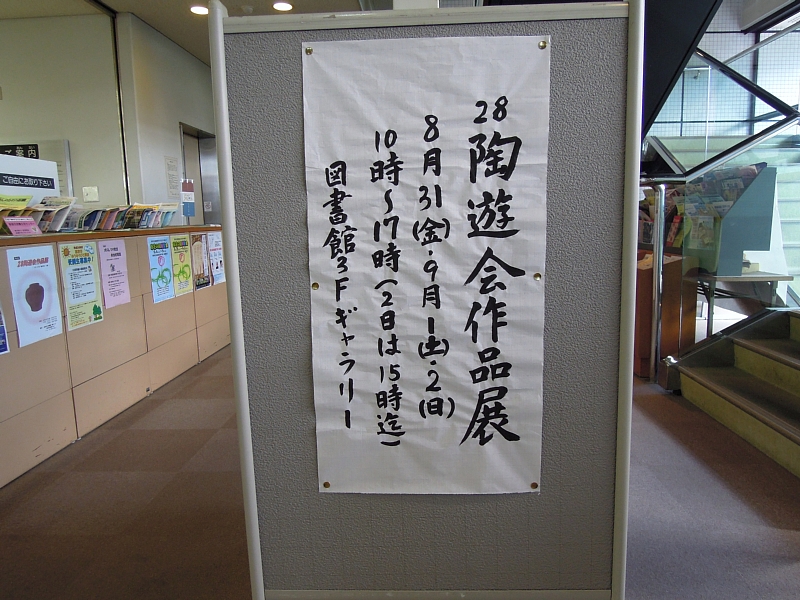 28陶遊会作品展
8月31(金)・9月1(土)・2(日)
10時〜17時(2日は15時迄)
図書館3Fギャラリー
ご案内
ご自由にお取り下さい